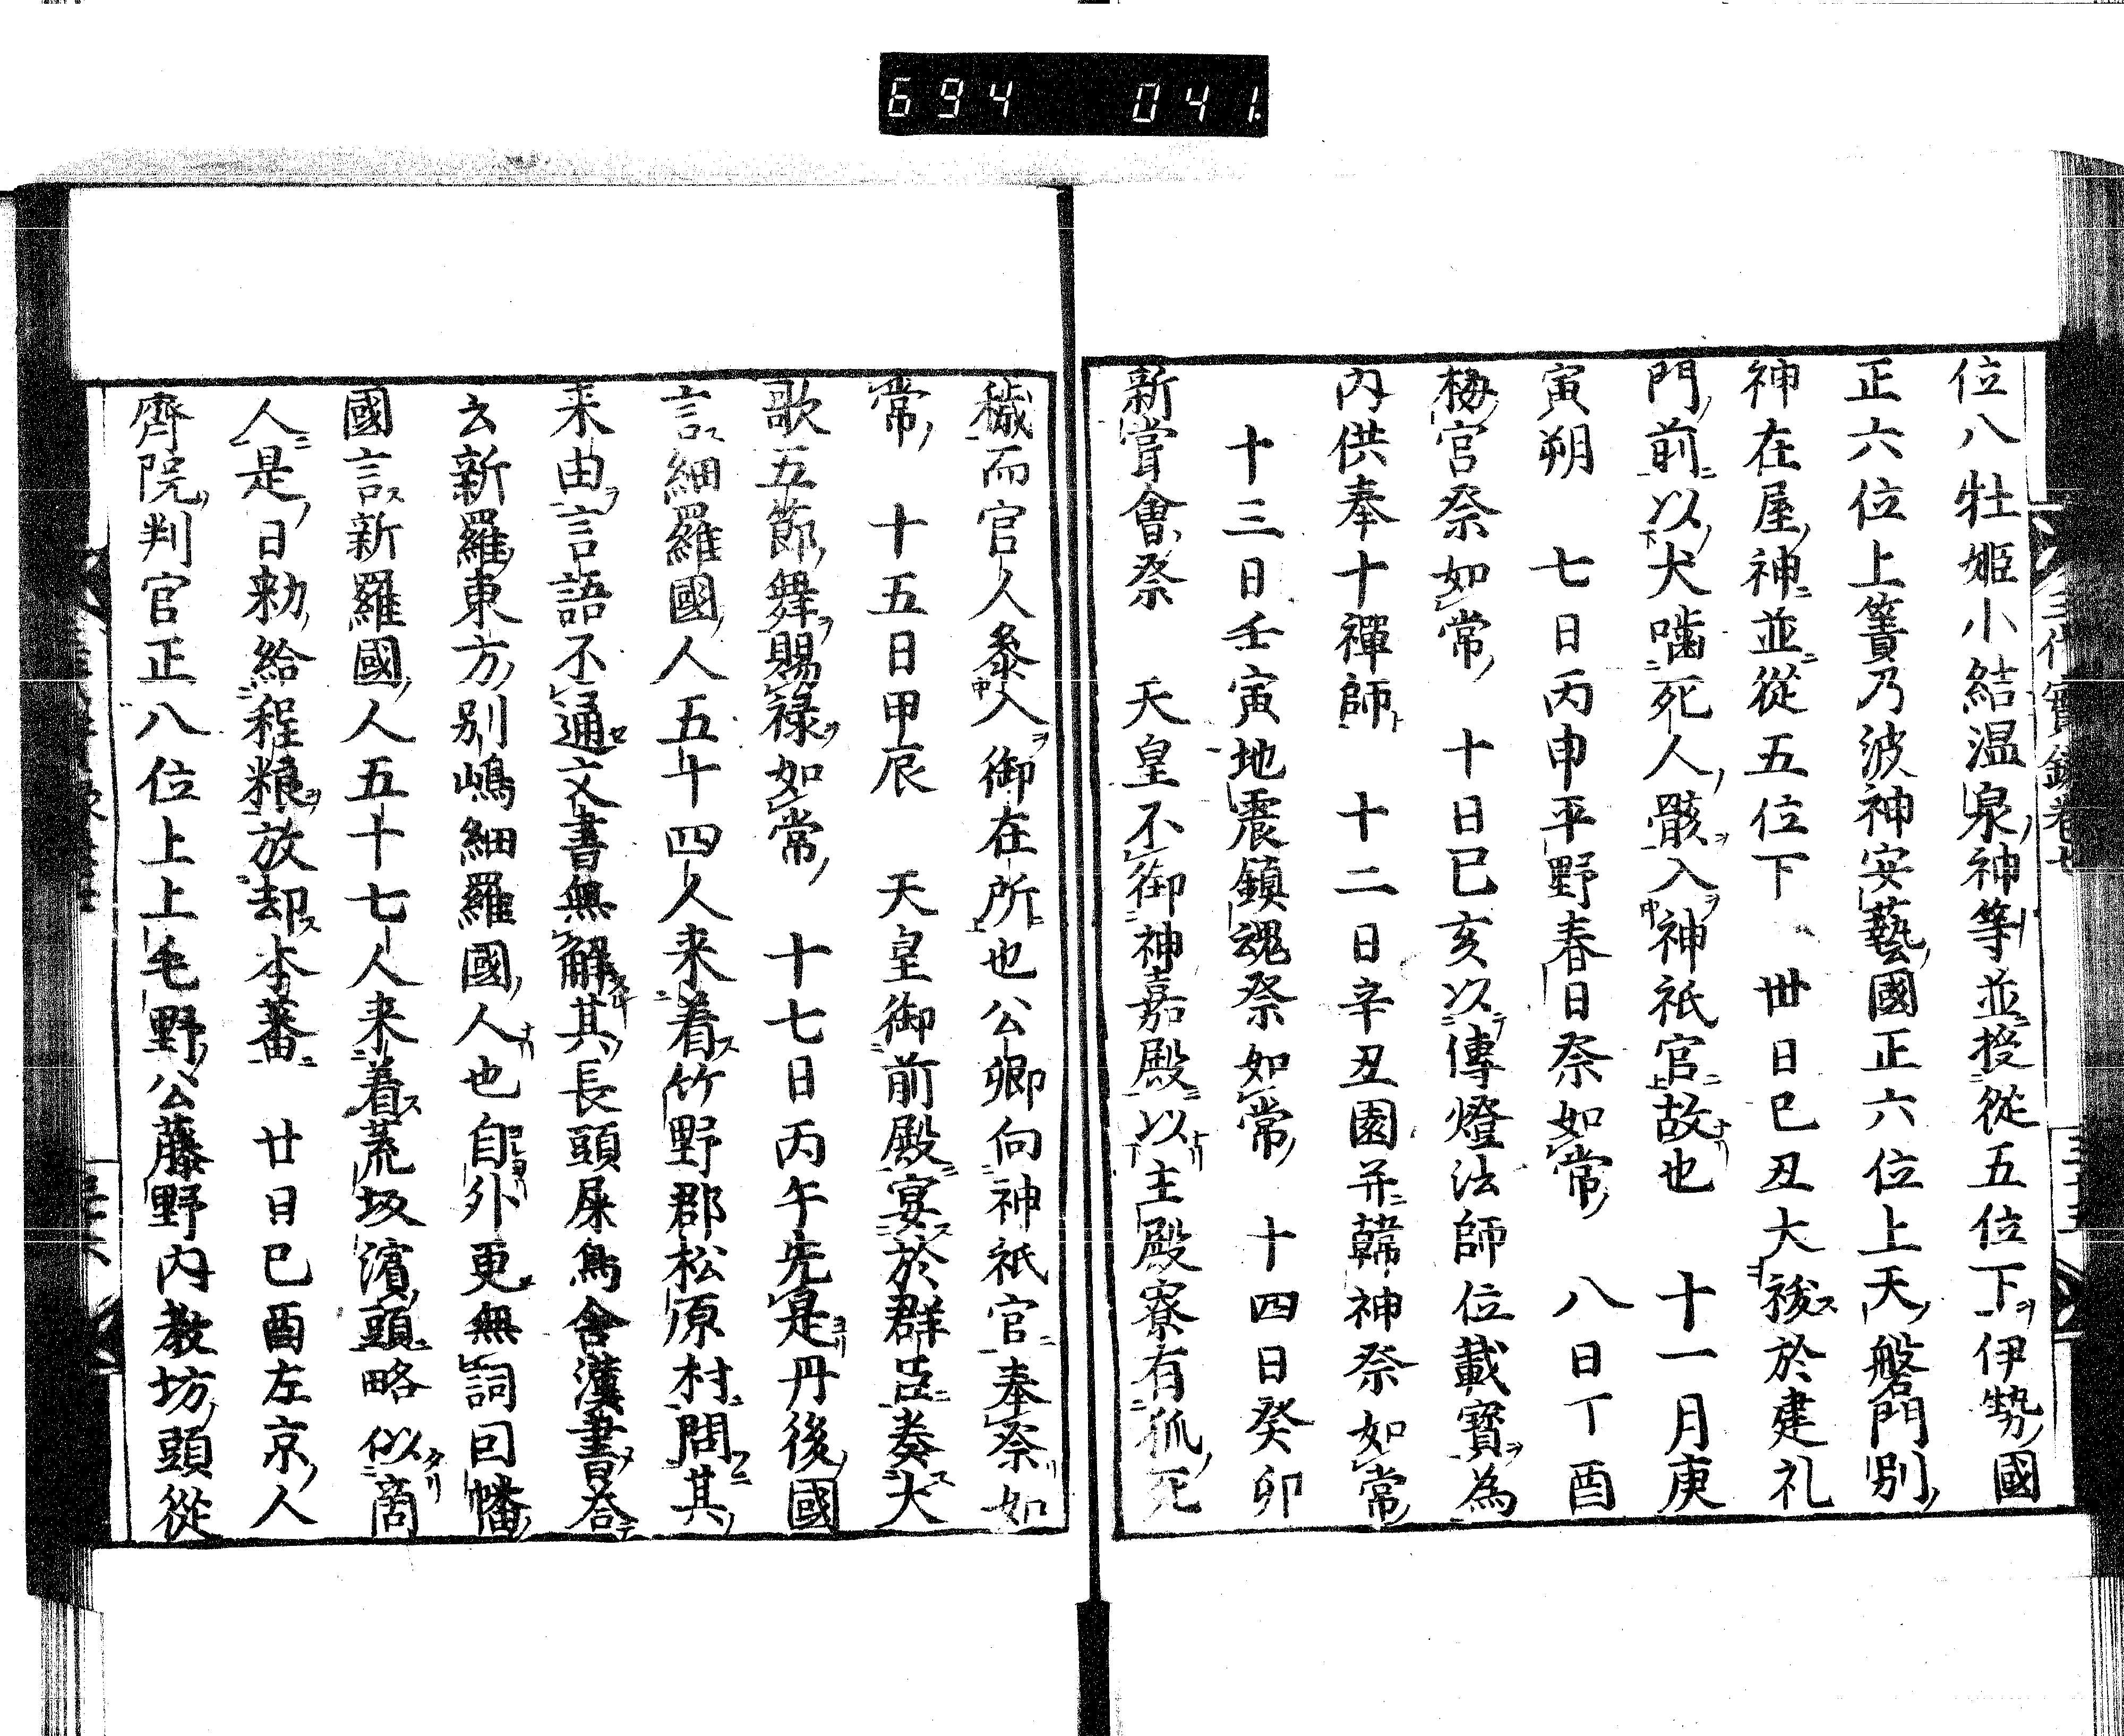 694 041.
位八牡姫小結温泉神等並授從五位下伊勢國
正六位上簀乃波神安藝國正六位上天磐門別
神在屋神並從五位下 卅日己丑大祓於建礼
門前以犬噛死人骸入神祇官故也 十一月庚
寅朔 七日丙申平野春日祭如常 八日丁酉
梅宮祭如常 十日己亥以傳燈法師位載寳為
内供奉十禪師 十二日辛丑園并韓神祭如常
十三日壬寅地震鎮魂祭如常 十四日癸卯
新甞會祭 天皇不御神嘉殿以主殿寮有狐死
穢而官人叅入御在所也公卿向神祇官奉祭如
常 十五日甲辰 天皇御前殿宴於群臣奏大
歌五節舞賜禄如常 十七日丙午先是丹後國
言細羅國人五十四人来着竹野郡松原村問其
来由言語不通文書無解其長頭屎烏舎漢書答
云新羅東方別嶋細羅國人也自外更無詞因幡
國言新羅國人五十七人来着荒坂濱頭略似商
人是日勅給程粮放却本蕃 廿日己酉左京人
齊院判官正八位上上毛野公藤野内教坊頭從